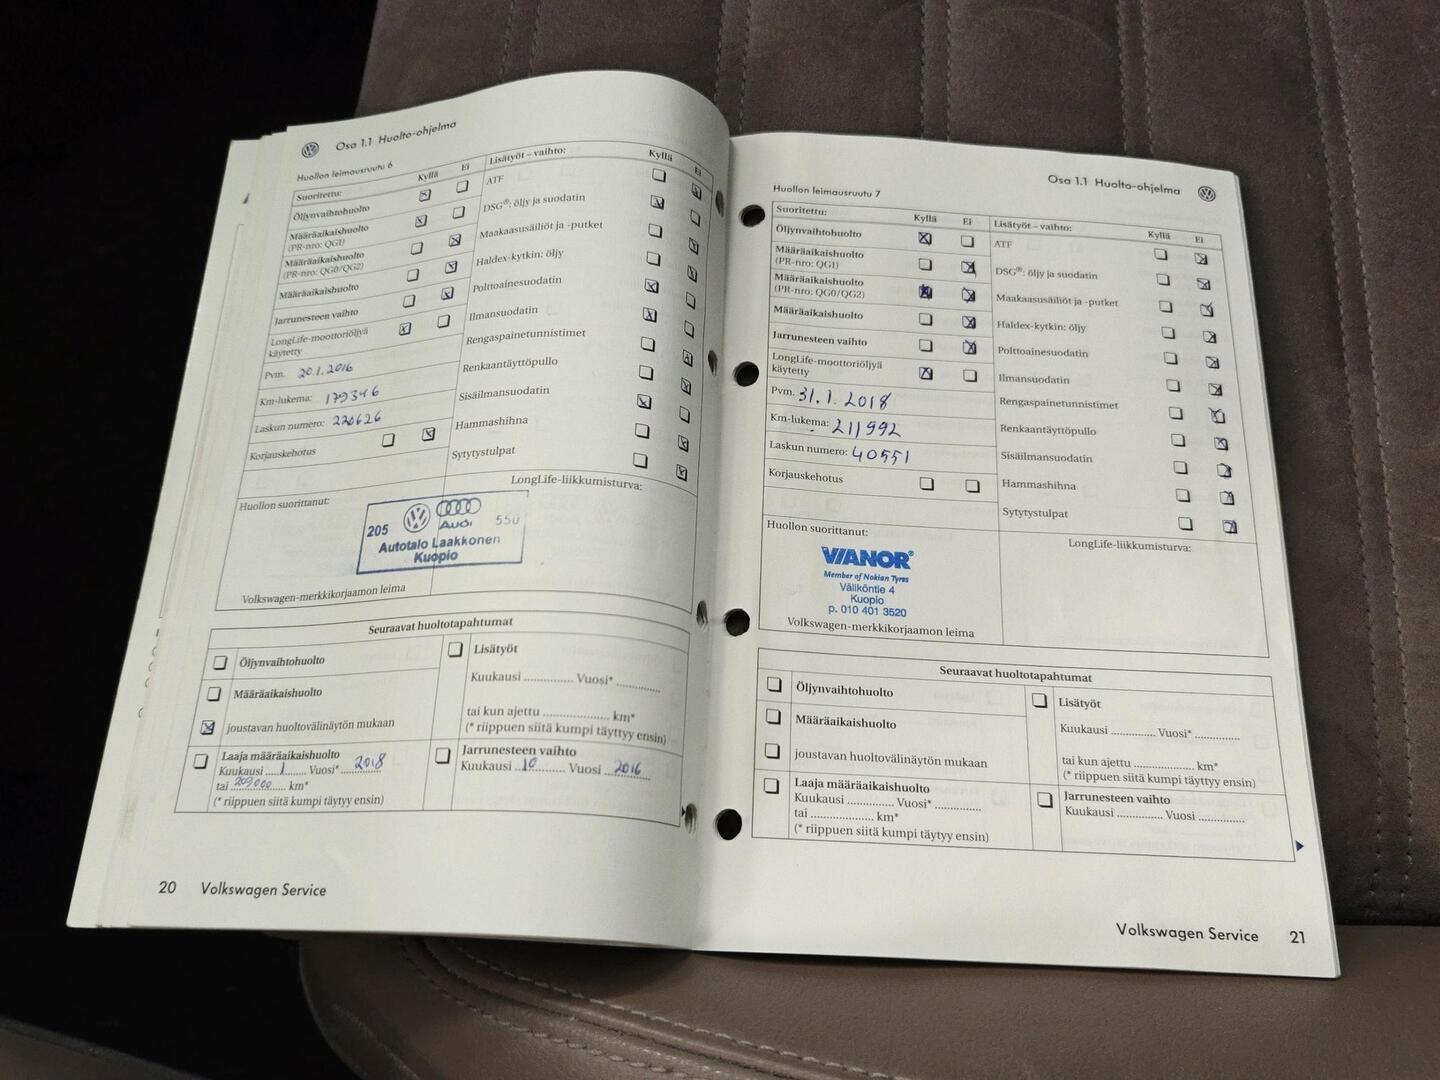 Osa 1.1 Huolto-ohjelma
Huollon leimausruutu 6
Suoritettu:
Kyllä
Ei
Öljynvaihtohuolto
Määräaikaishuolto
(PR-nro: QG1)
Määräaikaishuolto
(PR-nro: QG0/QG2)
Määräaikaishuolto
Jarrunesteen vaihto
LongLife-moottoriöljyä
käytetty
Pvm. 20.1.2016
Km-lukema: 179346
Laskun numero: 220626
Korjauskehotus
Lisätyöt – vaihto:
Kyllä
Ei
ATF
DSG®: öljy ja suodatin
Maakaasusäiliöt ja -putket
Haldex-kytkin: öljy
Polttoainesuodatin
Ilmansuodatin
Rengaspainetunnistimet
Renkaantäyttöpullo
Sisäilmansuodatin
Hammashihna
Sytytystulpat
Huollon suorittanut:
LongLife-liikkumisturva:
205 Audi 550
Autotalo Laakkonen
Kuopio
Volkswagen-merkkikorjaamon leima
Seuraavat huoltotapahtumat
Öljynvaihtohuolto
Määräaikaishuolto
joustavan huoltovälinäytön mukaan
Laaja määräaikaishuolto
Kuukausi ..1...... Vuosi* ..2018
tai 209000 km*
(* riippuen siitä kumpi täytyy ensin)
Lisätyöt
Kuukausi .............. Vuosi* .............
tai kun ajettu .................... km*
(* riippuen siitä kumpi täyttyy ensin)
Jarrunesteen vaihto
Kuukausi ..10........ Vuosi ..2016...
20 Volkswagen Service
Osa 1.1 Huolto-ohjelma
Huollon leimausruutu 7
Suoritettu:
Kyllä
Ei
Öljynvaihtohuolto
Määräaikaishuolto
(PR-nro: QG1)
Määräaikaishuolto
(PR-nro: QG0/QG2)
Määräaikaishuolto
Jarrunesteen vaihto
LongLife-moottoriöljyä
käytetty
Pvm. 31.1.2018
Km-lukema: 211992
Laskun numero: 40551
Korjauskehotus
Lisätyöt – vaihto:
Kyllä
Ei
ATF
DSG®: öljy ja suodatin
Maakaasusäiliöt ja -putket
Haldex-kytkin: öljy
Polttoainesuodatin
Ilmansuodatin
Rengaspainetunnistimet
Renkaantäyttöpullo
Sisäilmansuodatin
Hammashihna
Sytytystulpat
Huollon suorittanut:
LongLife-liikkumisturva:
VIANOR®
Member of Nokian Tyres
Väliköntie 4
Kuopio
p. 010 401 3520
Volkswagen-merkkikorjaamon leima
Seuraavat huoltotapahtumat
Öljynvaihtohuolto
Määräaikaishuolto
joustavan huoltovälinäytön mukaan
Laaja määräaikaishuolto
Kuukausi .............. Vuosi* ..............
tai .................... km*
(* riippuen siitä kumpi täytyy ensin)
Lisätyöt
Kuukausi .............. Vuosi* ..............
tai kun ajettu .................... km*
(* riippuen siitä kumpi täyttyy ensin)
Jarrunesteen vaihto
Kuukausi .............. Vuosi ..............
Volkswagen Service 21